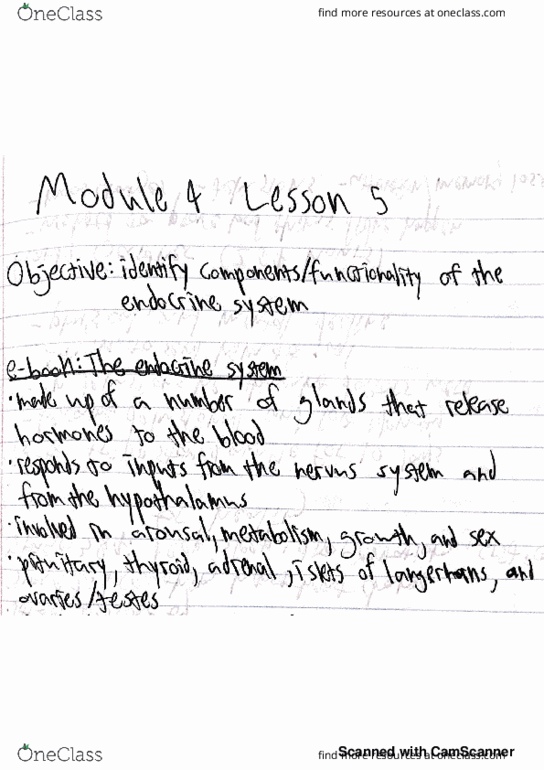 OneClass
find more resources at oneclass.com
Module 4 Lesson 5
Objective: identify components/functionality of the
endocrine system
e-book: The endocrine system
• made up of a number of glands that release
hormones to the blood
• responds to inputs from the nervus system and
from the hypothalamus
• involved in arousal, metabolism, growth, and sex
• pituitary, thyroid, adrenal, islets of langerhans, and
ovaries/testes
OneClass
find more resources at oneclass.com
Scanned with CamScanner